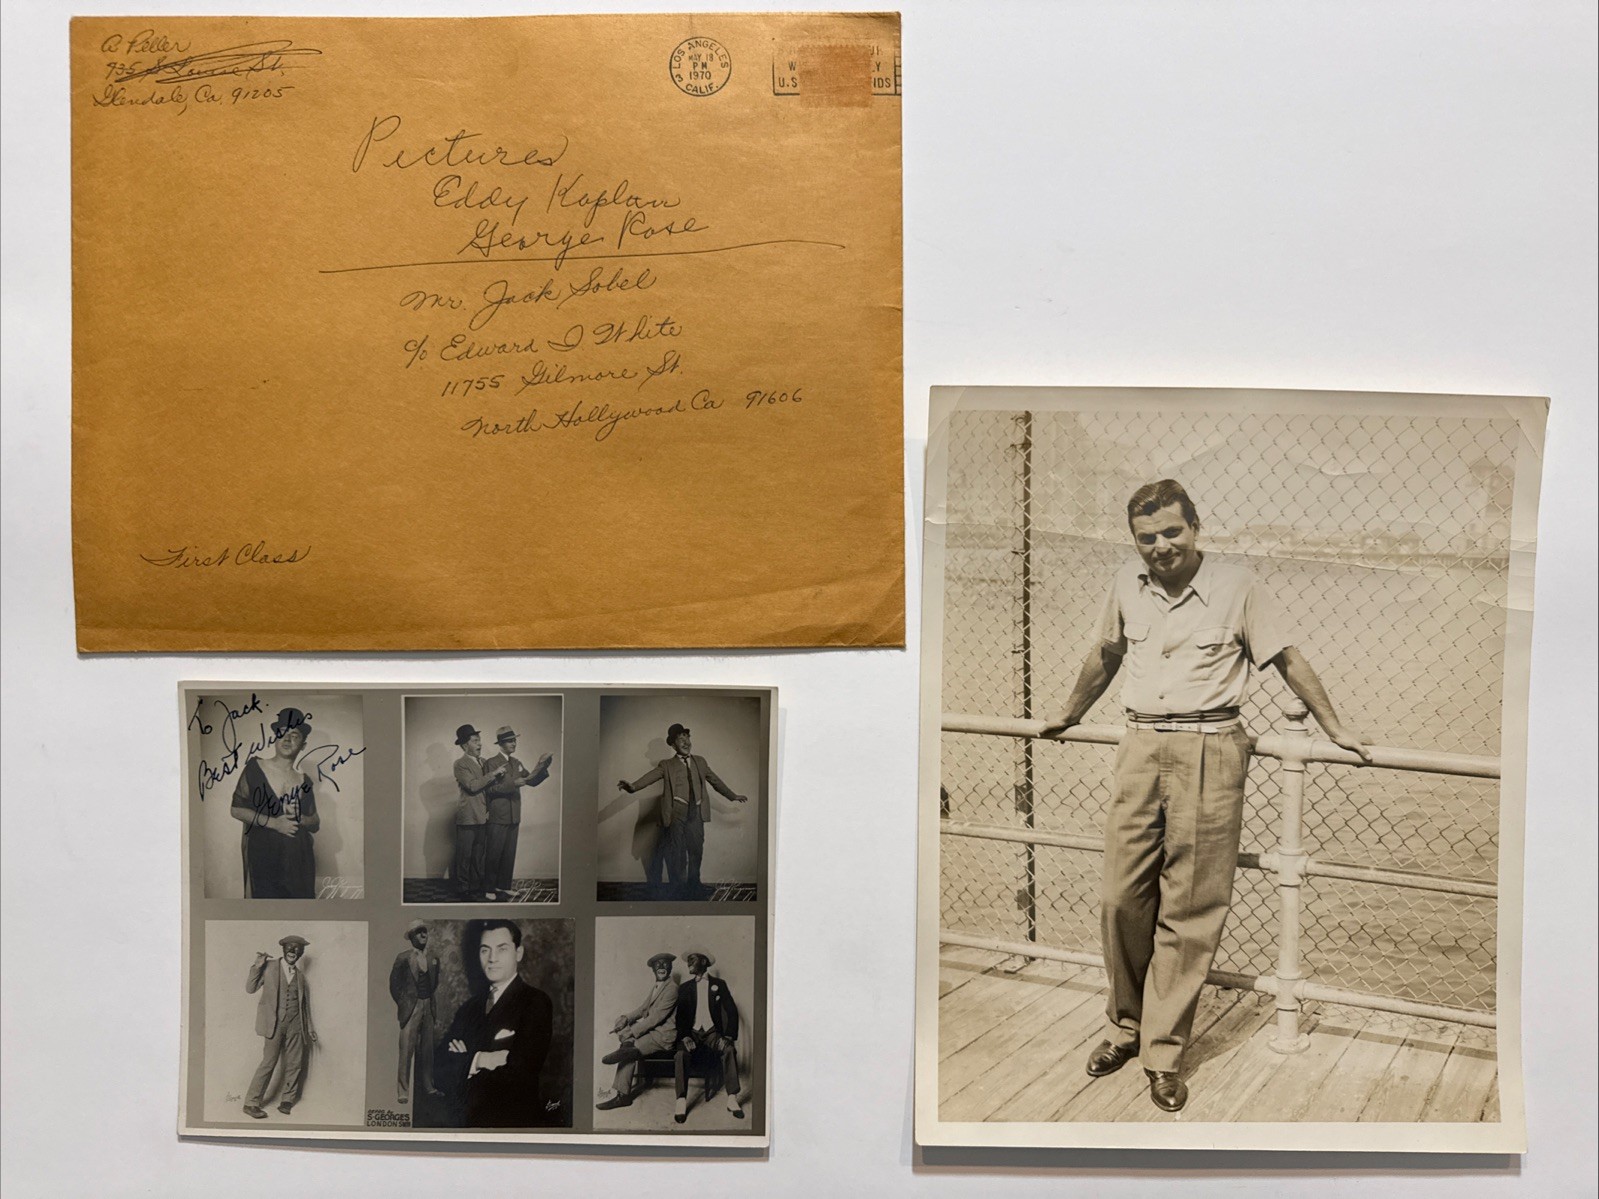 A Peller
935 S Louise St.
Glendale, Ca, 91205
LOS ANGELES
MAY 18
PM
1970
CALIF.
3
W
U.S
NDS
Pictures
Eddy Kaplan
George Rose
Mr. Jack Sobel
c/o Edward I White
11755 Gilmore St.
North Hollywood Ca 91606
First Class
To Jack.
Best Wishes
George Rose
S-GEORGES
LONDON